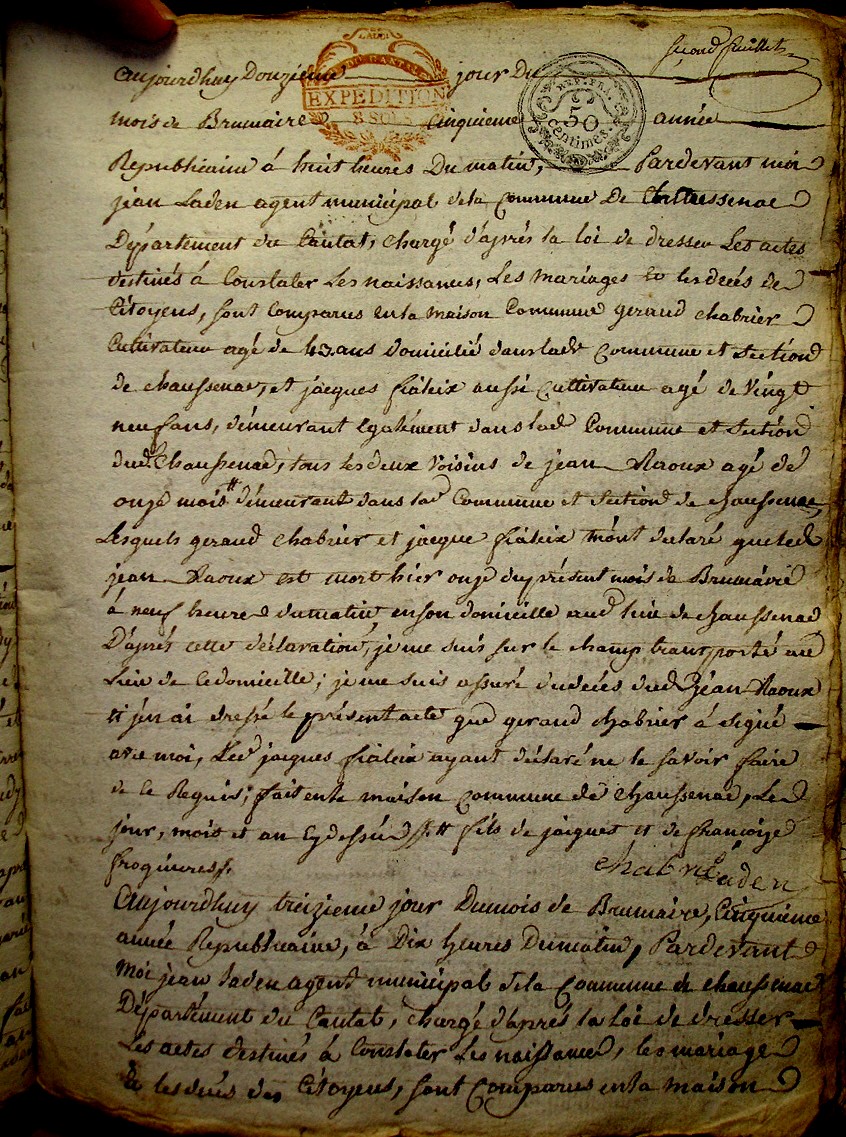 Second feuillet
EXPEDITION
8 SOLS
REP. FRA.
50
centimes.
aujourdhuy Douzieme jour Du
mois de Brumaire cinquieme année
Republicaine à huit heures Du matin, Pardevant moi
jean Laden agent municipal dela Commune De Chaussenac
Département du Cantal, chargé d'aprés la loi de dresser Les actes
destinés à Constater Les naissances, Les mariages et les decés de
Citoyens, sont Comparus en la maison Commune geraud chabrier
Cultivateur agé de 43 ans domicilié dans lade Commune et Section
de chaussenac, et jacques fialeix aussi Cultivateur agé de vingt
neuf ans, démeurant Egalément dans lad Commune et Section
dud Chaussenac, tous les deux voisins de jean Raoux agé de
onze mois # démeurant dans lad Commune et Section de chaussenac,
Lesquels geraud chabrier et jacque fialeix m'ont declaré que led
jean Raoux est mort hier onze du présent mois de Brumaire
à neuf heures du matin en son domicille aud lieu de chaussenac
D'aprés cette déclaration, je me suis sur le champ transporté au
Lieu de Ce domicille; je me suis assuré du decés dud Jean Raoux
et j'en ai dressé le présent acte que geraud chabrier à signé
avec moi, Led jacques fialeix ayant déclaré ne le savoir faire
de Ce Requis; fait en la maison Commune de chaussenac, Le
jour, mois et an Cy dessus #. # fils de jacques et de françoize
froquieres.
chabrié Laden
Aujourdhuy treizieme jour Du mois de Brumaire, Cinquieme
année Republicaine, à Dix heures Du matin, Pardevant
Moi jean Laden agent municipal dela Commune de chaussenac
Département du Cantal, chargé d'aprés la loi de dresser
Les actes destinés à Constater Les naissances, les mariages
& les decés des Citoyens, sont Comparus en la maison